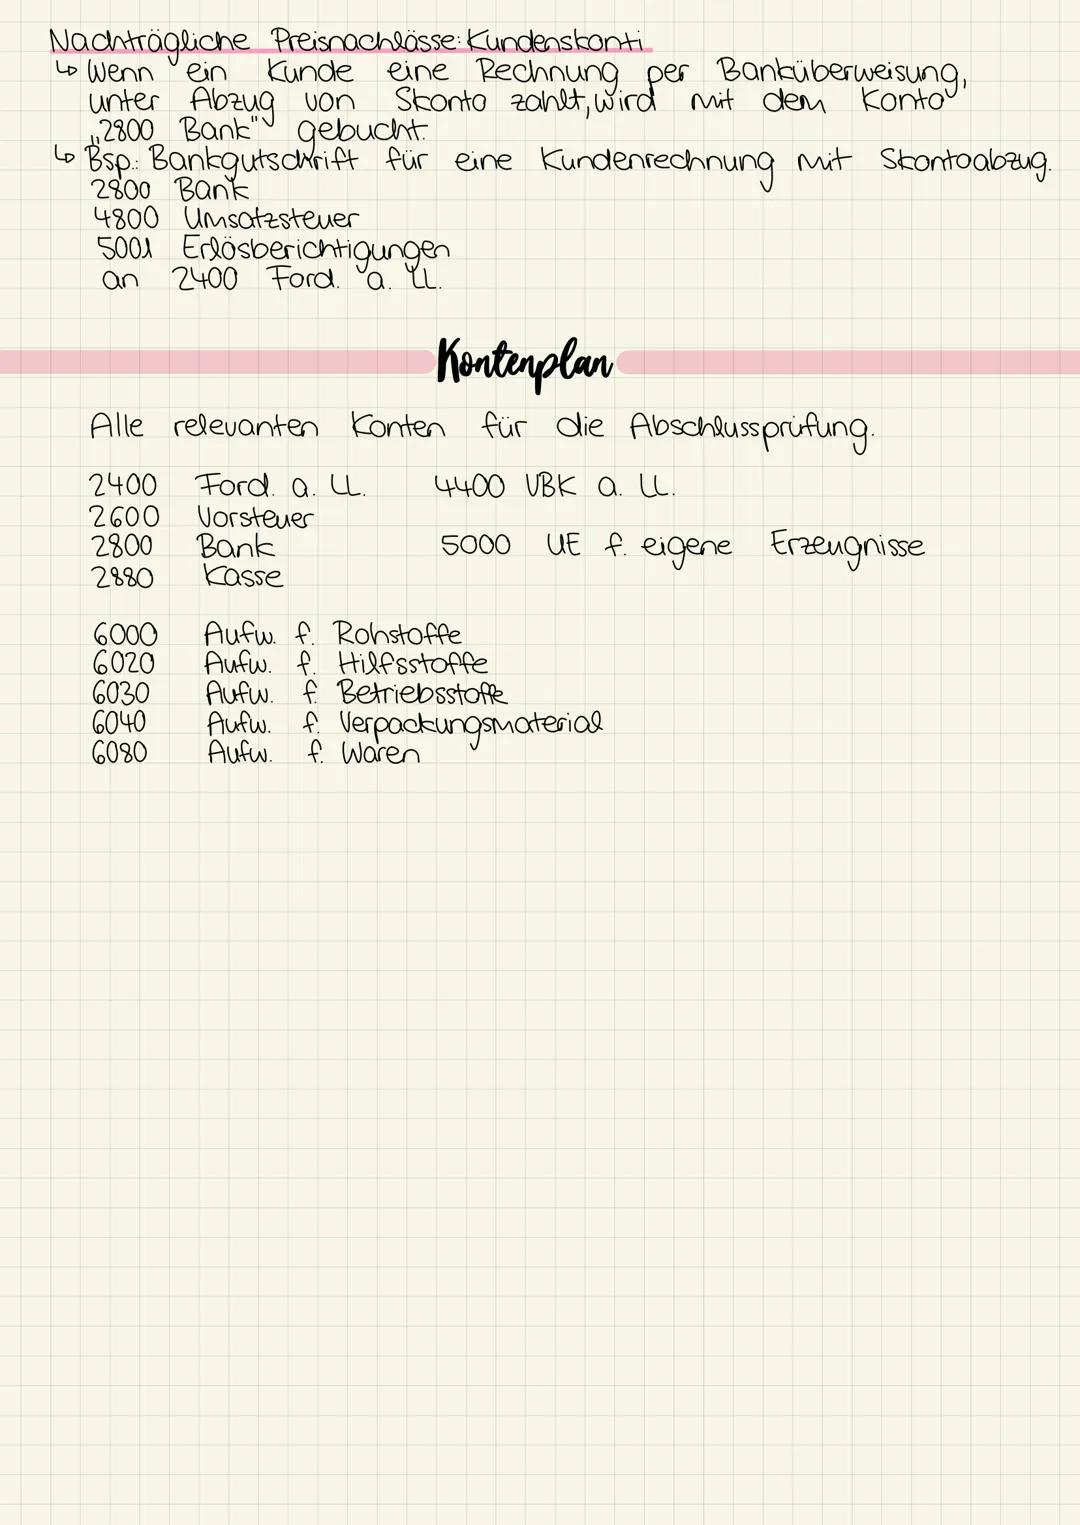 Nachträgliche Preisnachlässe: Kundenskonti
↳ Wenn ein Kunde eine Rechnung per Banküberweisung,
unter Abzug von Skonto zahlt, wird mit dem Konto
„2800 Bank" gebucht.
↳ Bsp.: Bankgutschrift für eine Kundenrechnung mit Skontoabzug.
2800 Bank
4800 Umsatzsteuer
5001 Erlösberichtigungen
an 2400 Ford. a. LL.
Kontenplan
Alle relevanten Konten für die Abschlussprüfung.
2400 Ford. a. LL. 4400 VBK a. LL.
2600 Vorsteuer
2800 Bank 5000 UE f. eigene Erzeugnisse
2880 Kasse
6000 Aufw. f. Rohstoffe
6020 Aufw. f. Hilfsstoffe
6030 Aufw. f. Betriebsstoffe
6040 Aufw. f. Verpackungsmaterial
6080 Aufw. f. Waren